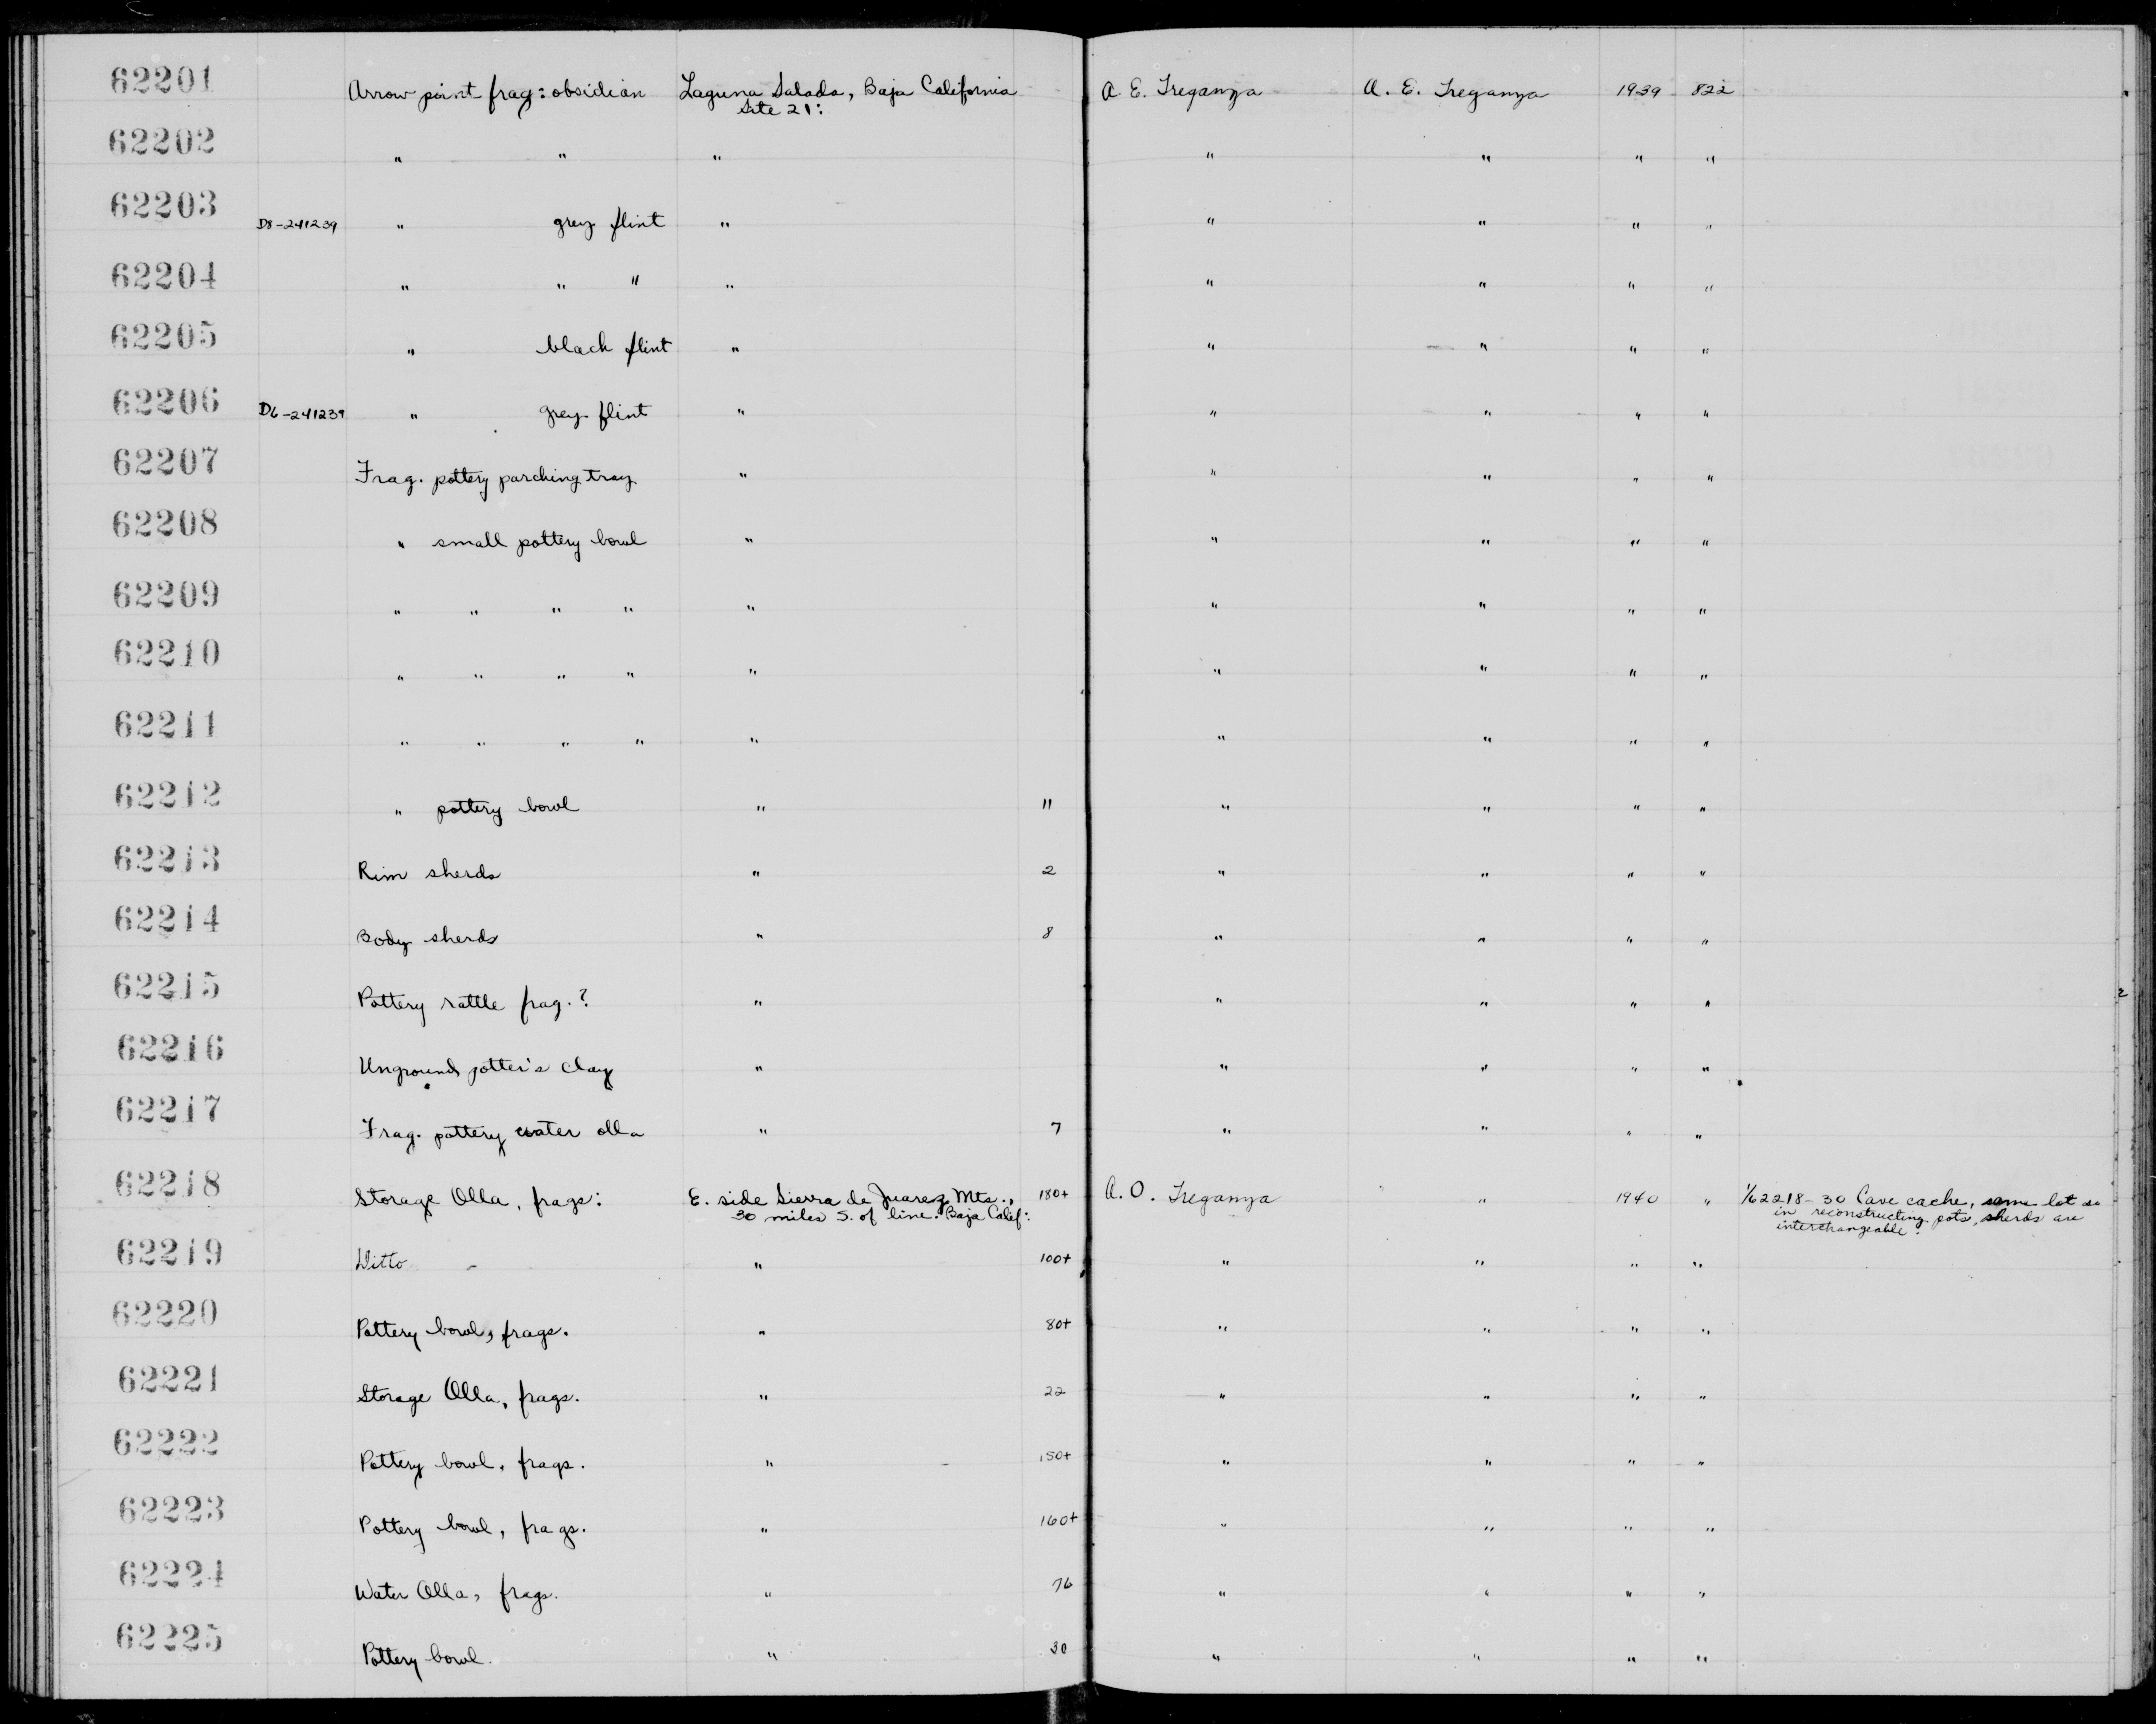 62201 Arrow point frag: obsidian Laguna Salada, Baja California A. E. Treganza A. E. Treganza 1939 822
Site 21:
62202 " " " " " " "
62203 D8-241239 " grey flint " " " " "
62204 " " " " " " " "
62205 " black flint " " " " "
62206 D6-241239 " grey flint " " " " "
62207 Frag. pottery parching tray " " " " "
62208 " small pottery bowl " " " " "
62209 " " " " " " " " "
62210 " " " " " " " " "
62211 " " " " " " " " "
62212 " pottery bowl " 11 " " " "
62213 Rim sherds " 2 " " " "
62214 Body sherds " 8 " " " "
62215 Pottery rattle frag. ? " " " " "
62216 Unground potter's clay " " " " "
62217 Frag. pottery water olla " 7 " " " "
62218 Storage Olla, frags: E. side Sierra de Juarez Mts., 180+ A. O. Treganza " 1940 " 1/62218-30 Cave cache, same lot so
30 miles S. of line. Baja Calif: in reconstructing pots, sherds are
interchangeable.
62219 Ditto " 100+ " " " "
62220 Pottery bowl, frags. " 80+ " " " "
62221 Storage Olla, frags. " 22 " " " "
62222 Pottery bowl, frags. " 150+ " " " "
62223 Pottery bowl, frags. " 160+ " " " "
62224 Water Olla, frags. " 76 " " " "
62225 Pottery bowl. " 30 " " " "